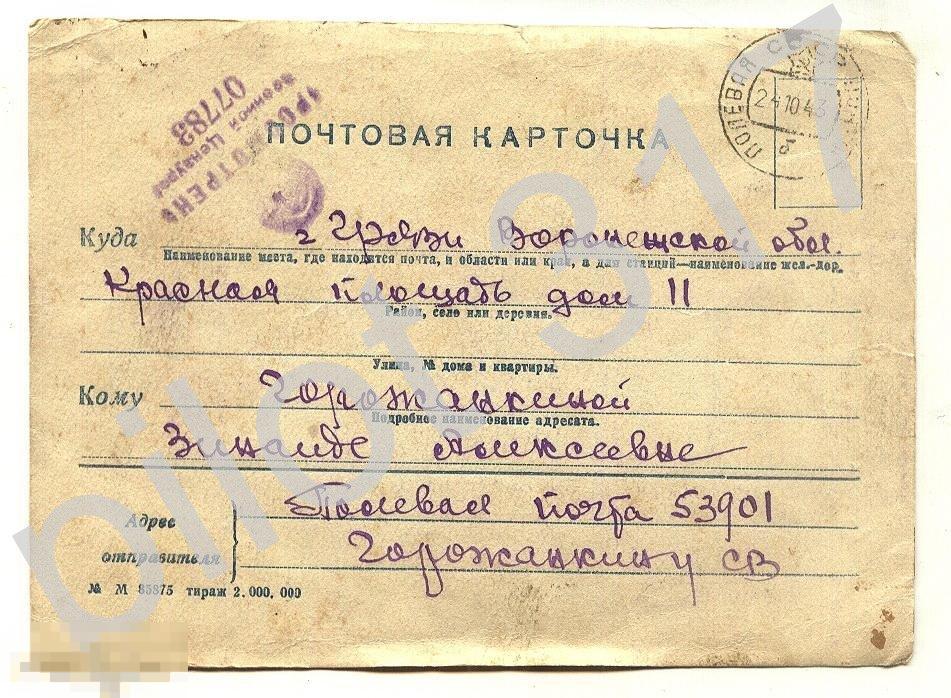 ПОЧТОВАЯ КАРТОЧКА
ПРОСМОТРЕНО
Военной Цензурой
07783
ПОЛЕВАЯ
24 10 43
б
Куда г Грязи Воронежской обл.
Наименование места, где находится почта, и области или края, а для станций—наименование жел.-дор.
Красная площадь дом 11
Район, село или деревня.
Улица, № дома и квартиры.
Кому Горожанкиной
Подробное наименование адресата.
Зинаиде Алексеевне
Адрес отправителя
Полевая почта 53901
Горожанкину СВ
№ М 85875 тираж 2.000.000
pilot 317